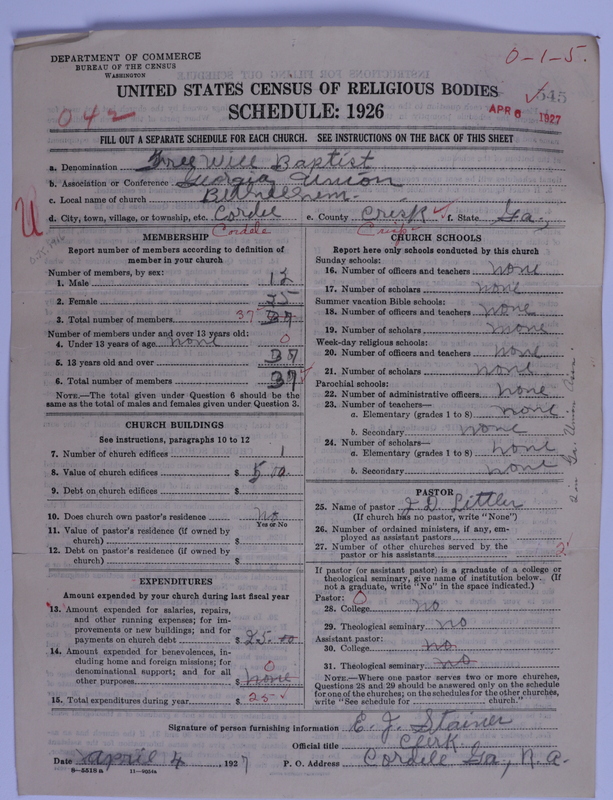 DEPARTMENT OF COMMERCE
BUREAU OF THE CENSUS
WASHINGTON
0-1-5.
UNITED STATES CENSUS OF RELIGIOUS BODIES
SCHEDULE: 1926
042
545
APR 6 1927
FILL OUT A SEPARATE SCHEDULE FOR EACH CHURCH. SEE INSTRUCTIONS ON THE BACK OF THIS SHEET
a. Denomination Free Will Baptist
b. Association or Conference Georgia Union
c. Local name of church
d. City, town, village, or township, etc. Cordele e. County Crisp f. State Ga,
U
MEMBERSHIP Cordele
Report number of members according to definition of member in your church
Number of members, by sex:
1. Male 12
2. Female 25
3. Total number of members 37 37
Number of members under and over 13 years old:
4. Under 13 years of age none 0
5. 13 years old and over 37
6. Total number of members 37
NOTE.—The total given under Question 6 should be the same as the total of males and females given under Question 3.
CHURCH BUILDINGS
See instructions, paragraphs 10 to 12
7. Number of church edifices 1
8. Value of church edifices $ 500
9. Debt on church edifices $
10. Does church own pastor's residence no
Yes or No
11. Value of pastor's residence (if owned by church) $
12. Debt on pastor's residence (if owned by church) $
EXPENDITURES
Amount expended by your church during last fiscal year
13. Amount expended for salaries, repairs, and other running expenses; for improvements or new buildings; and for payments on church debt $ 25.00
14. Amount expended for benevolences, including home and foreign missions; for denominational support; and for all other purposes $ none 0
15. Total expenditures during year $ 25
Crisp
CHURCH SCHOOLS
Report here only schools conducted by this church
Sunday schools:
16. Number of officers and teachers none
17. Number of scholars none
Summer vacation Bible schools:
18. Number of officers and teachers none
19. Number of scholars none
Week-day religious schools:
20. Number of officers and teachers none
21. Number of scholars none
Parochial schools:
22. Number of administrative officers none
23. Number of teachers—
a. Elementary (grades 1 to 8) none
b. Secondary none
24. Number of scholars—
a. Elementary (grades 1 to 8) none
b. Secondary none
PASTOR
25. Name of pastor J. D. Littler
(If church has no pastor, write "None")
26. Number of ordained ministers, if any, employed as assistant pastors
27. Number of other churches served by the pastor or his assistants 2
If pastor (or assistant pastor) is a graduate of a college or theological seminary, give name of institution below. (If not a graduate, write "No" in the space indicated.)
Pastor: 0
28. College no
29. Theological seminary no
Assistant pastor:
30. College no
31. Theological seminary no
NOTE.—Where one pastor serves two or more churches, Questions 28 and 29 should be answered only on the schedule for one of the churches; on the schedules for the other churches, write "See schedule for church."
Signature of person furnishing information E. J. Stainer
Official title Clerk
Date april 4, 1927 P. O. Address Cordele Ga,
8-5518 a 11-9054a